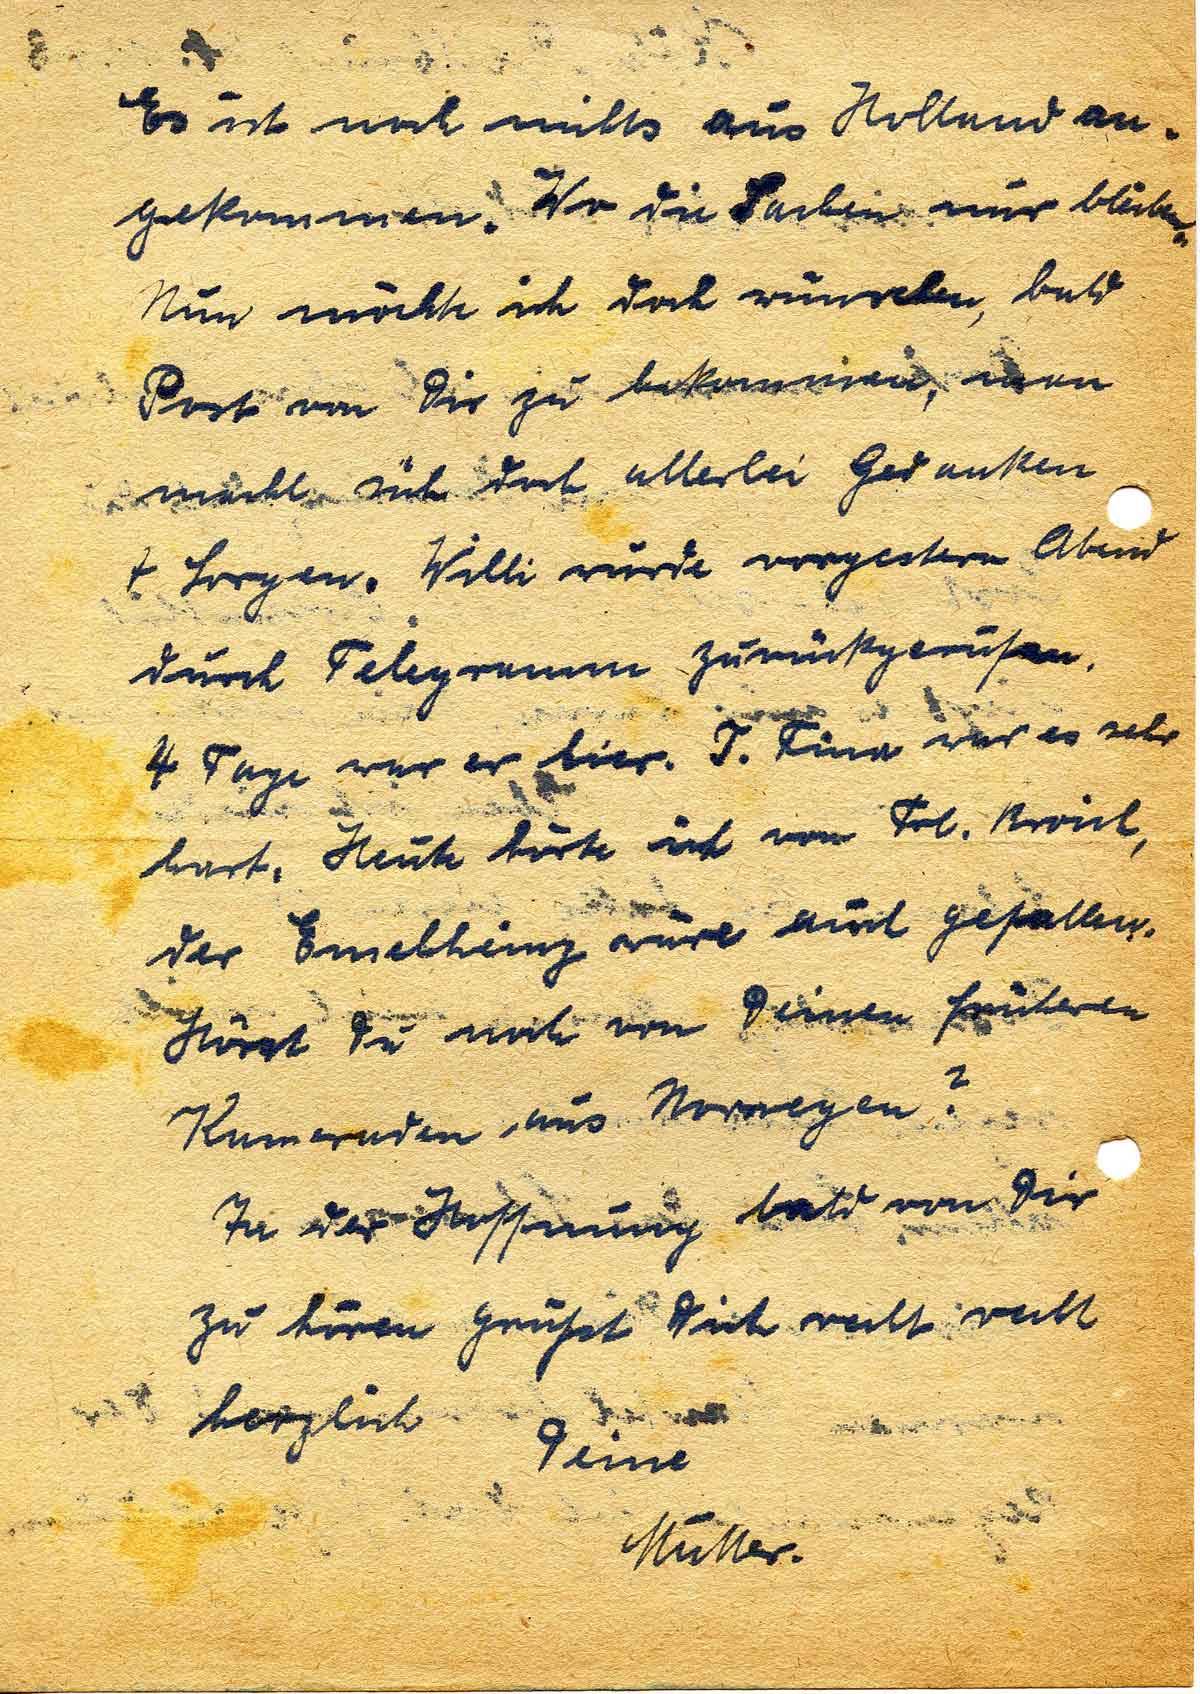 Es ist noch nichts aus Holland an-
gekommen. Wo die Sachen nur bleiben.
Nun möchte ich doch wünschen, bald
Post von Dir zu bekommen, man
macht sich doch allerlei Gedanken
+ Sorgen. Willi wurde vorgestern Abend
durch Telegramm zurückgerufen.
4 Tage war er hier. T. Tina war es sehr
hart. Heute hörte ich von Frl. Kroich,
der Emelheinz wäre auch gefallen.
Hörst Du noch von Deinen früheren
Kameraden aus Norwegen?
In der Hoffnung bald von Dir
zu hören grüßt Dich recht recht
herzlich
Deine
Mutter.